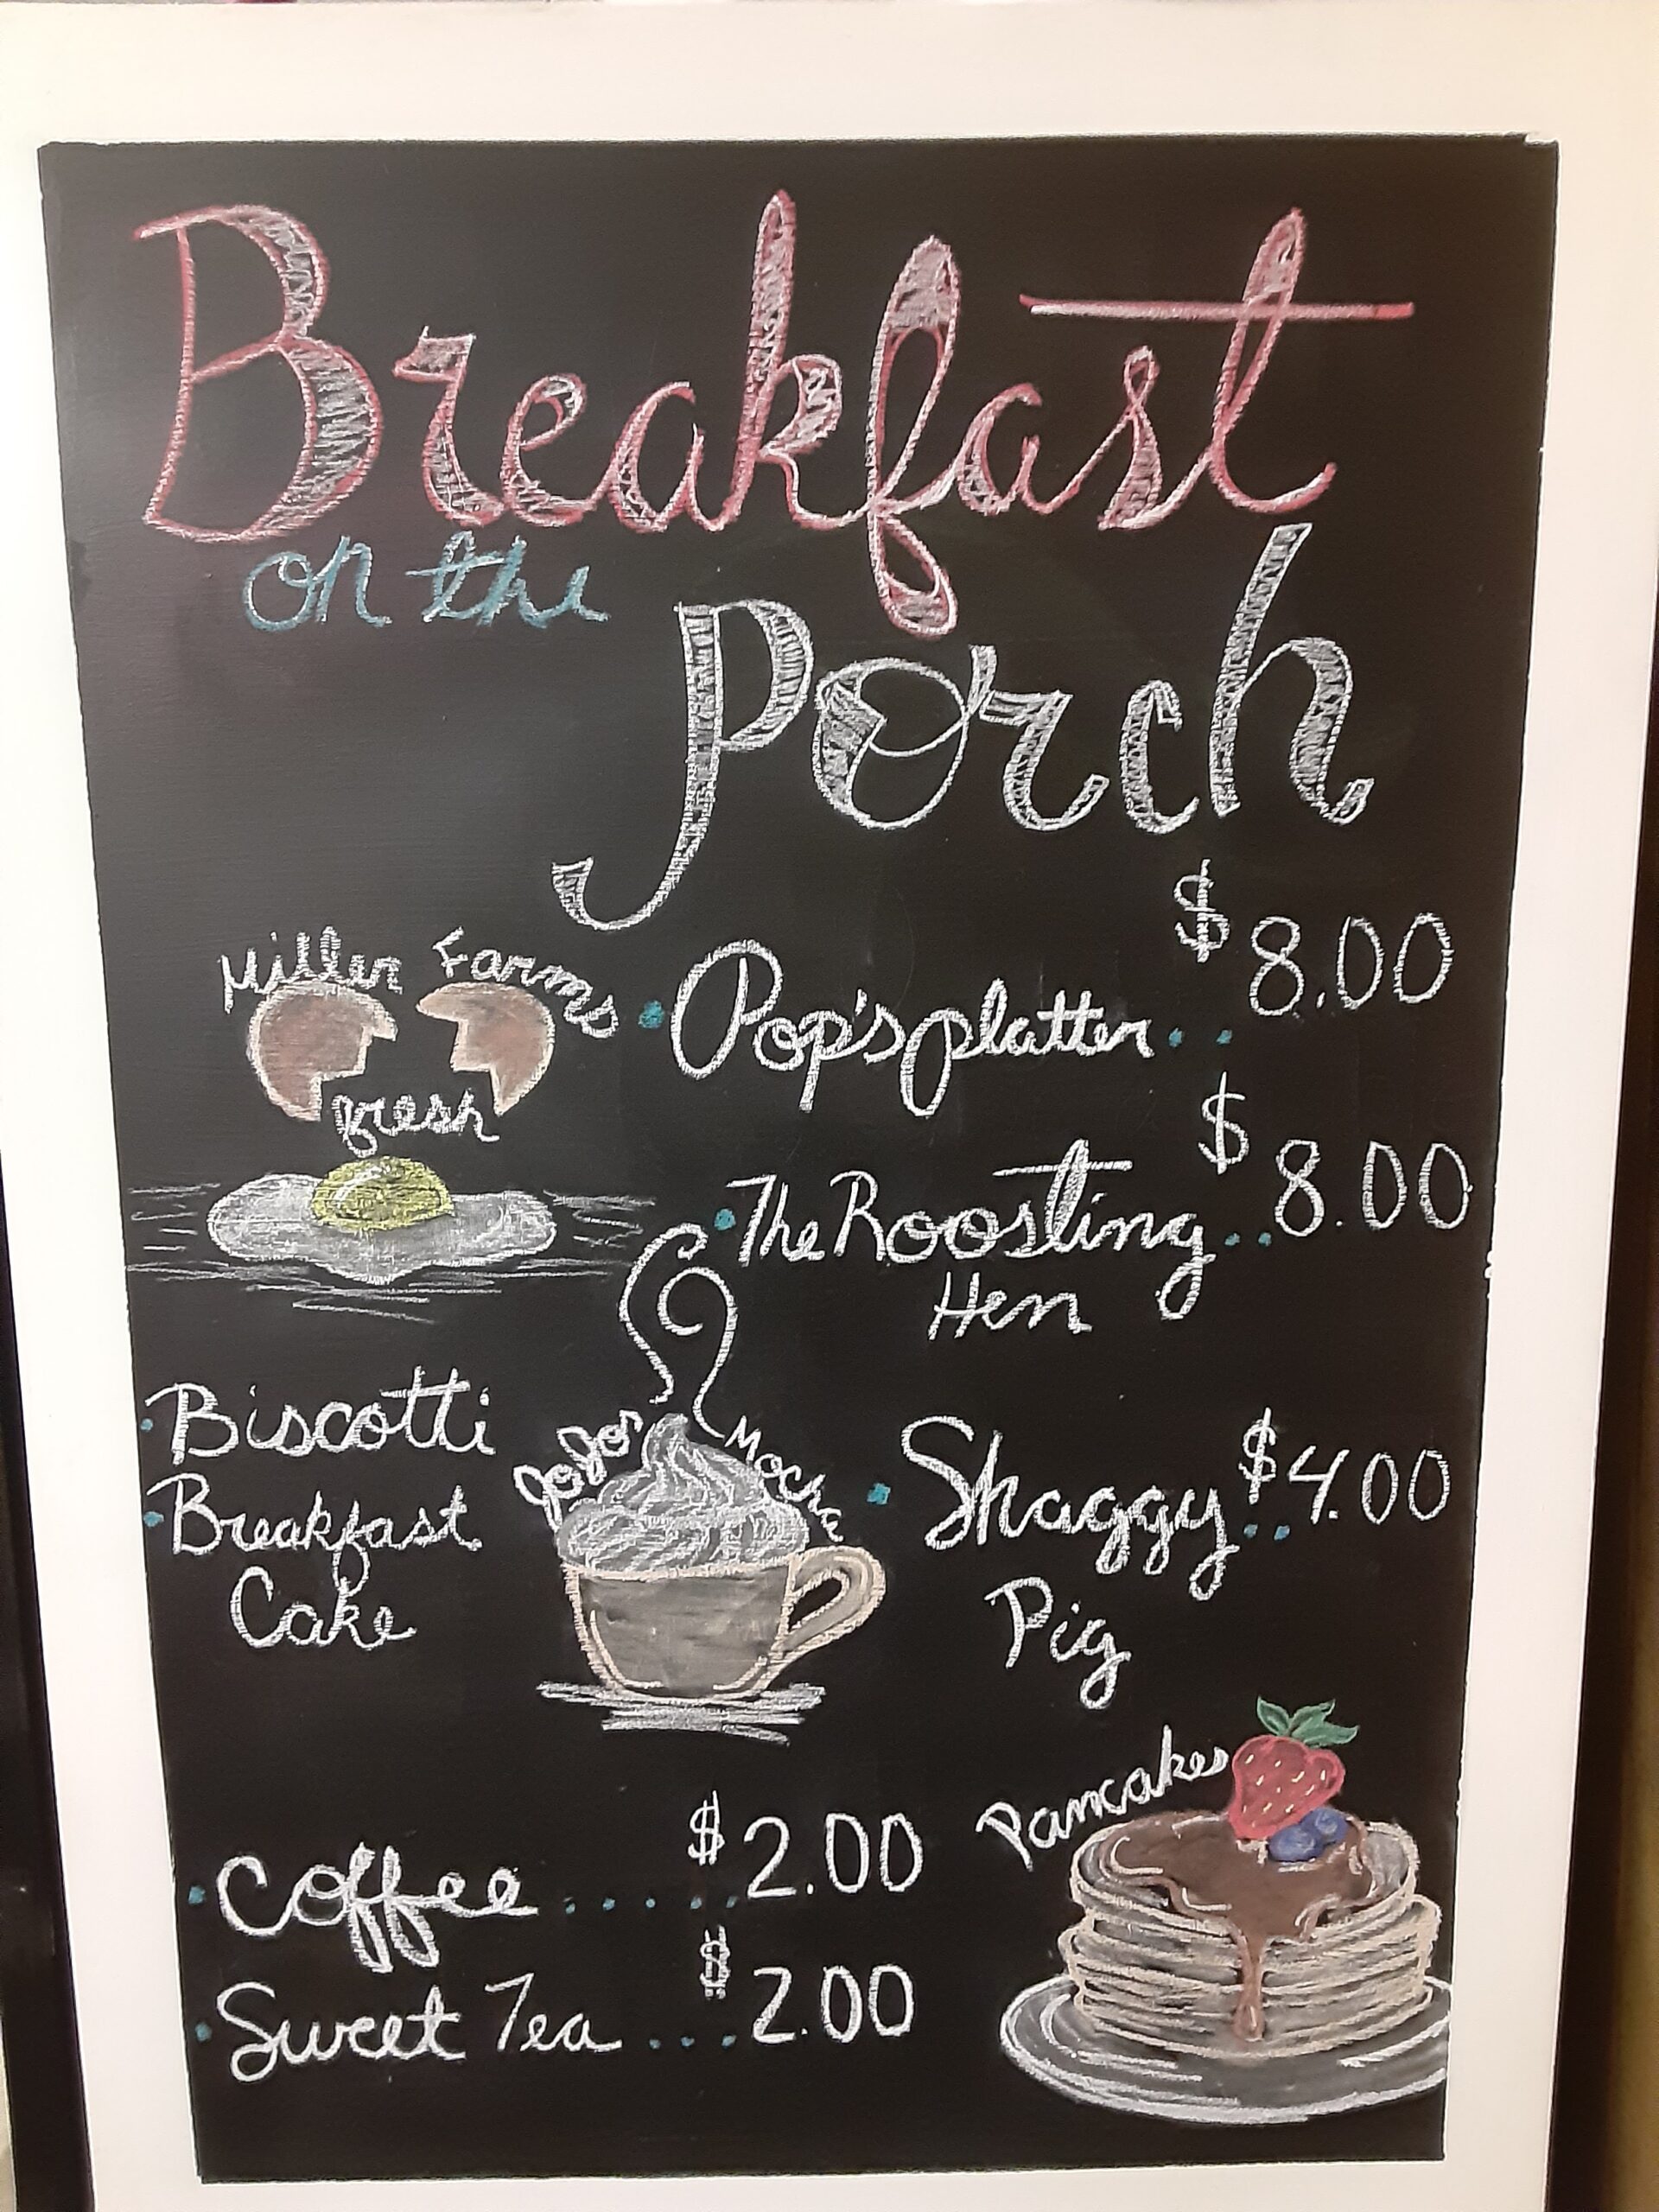 Breakfast
on the
Porch
Miller Farms
fresh
• Pop's platter . . $8.00
• The Roosting . . $8.00
Hen
• Biscotti
• Breakfast
Cake
JoJo's Mocha
• Shaggy . . $4.00
Pig
Pancakes
• Coffee . . . . . . $2.00
• Sweet Tea . . . . $2.00